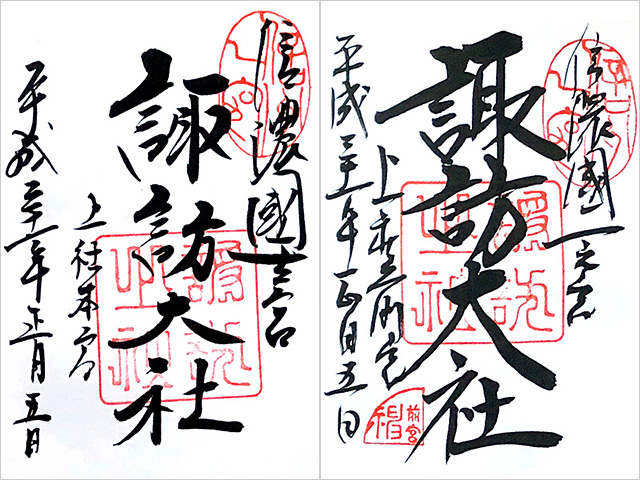 信濃國一之宮
諏訪大社
上社本宮
平成三十一年正月五日
信濃國一之宮
諏訪大社
上社前宮
平成三十一年正月五日
前宮